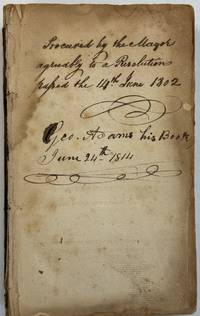 Procured by the Mayor
agreeably to a Resolution
passed the 14th June 1802
Geo. Adams his Book
June 24th 1814